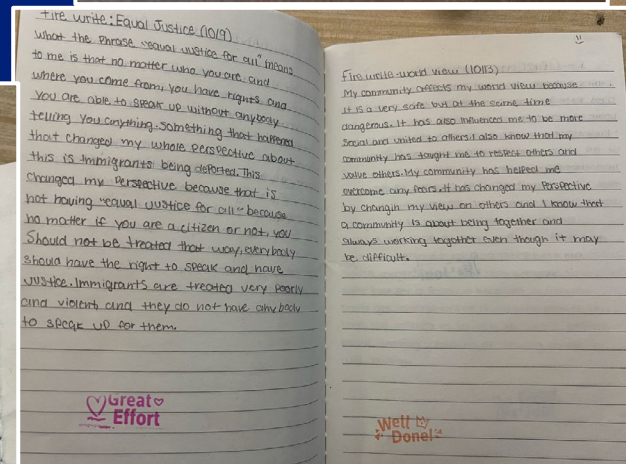 Fire write: Equal Justice (10/9)
What the Phrase "equal Justice for all" means
to me is that no matter who you are and
where you come from, you have rights and
you are able to speak up without anybody
telling you anything. Something that happened
that changed my whole Perspective about
this is Immigrants being deported. This
changed my Perspective because that is
not having "equal Justice for all" because
no matter if you are a citizen or not, you
Should not be treated that way, everybody
should have the right to speak and have
Justice. Immigrants are treated very poorly
and violent, and they do not have anybody
to speak up for them.
Great
Effort
Fire write-world view (10/13)
My community affects my world view because
It is a very safe but at the same time
dangerous. It has also influenced me to be more
Social and united to others. I also know that my
community has taught me to respect others and
value others. My community has helped me
overcome any fears. It has changed my Perspective
by changin my view on others and I know that
a community is about being together and
always working together even though it may
be difficult.
Well
Done!